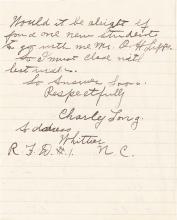 Would it be alright if
find one new student
to go with me Mr. O. H. Lipps.
So I must close with
best wishes.
So Answer Soon.
Respectfully
Charley Long.
Address
Whittier
R. F. D. #1. N C.